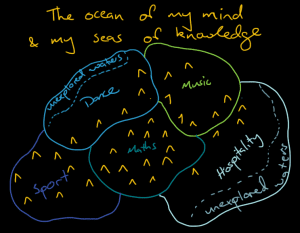 The ocean of my mind
& my seas of knowledge
unexplored waters
Dance
Music
Maths
Sport
Hospitality
unexplored waters